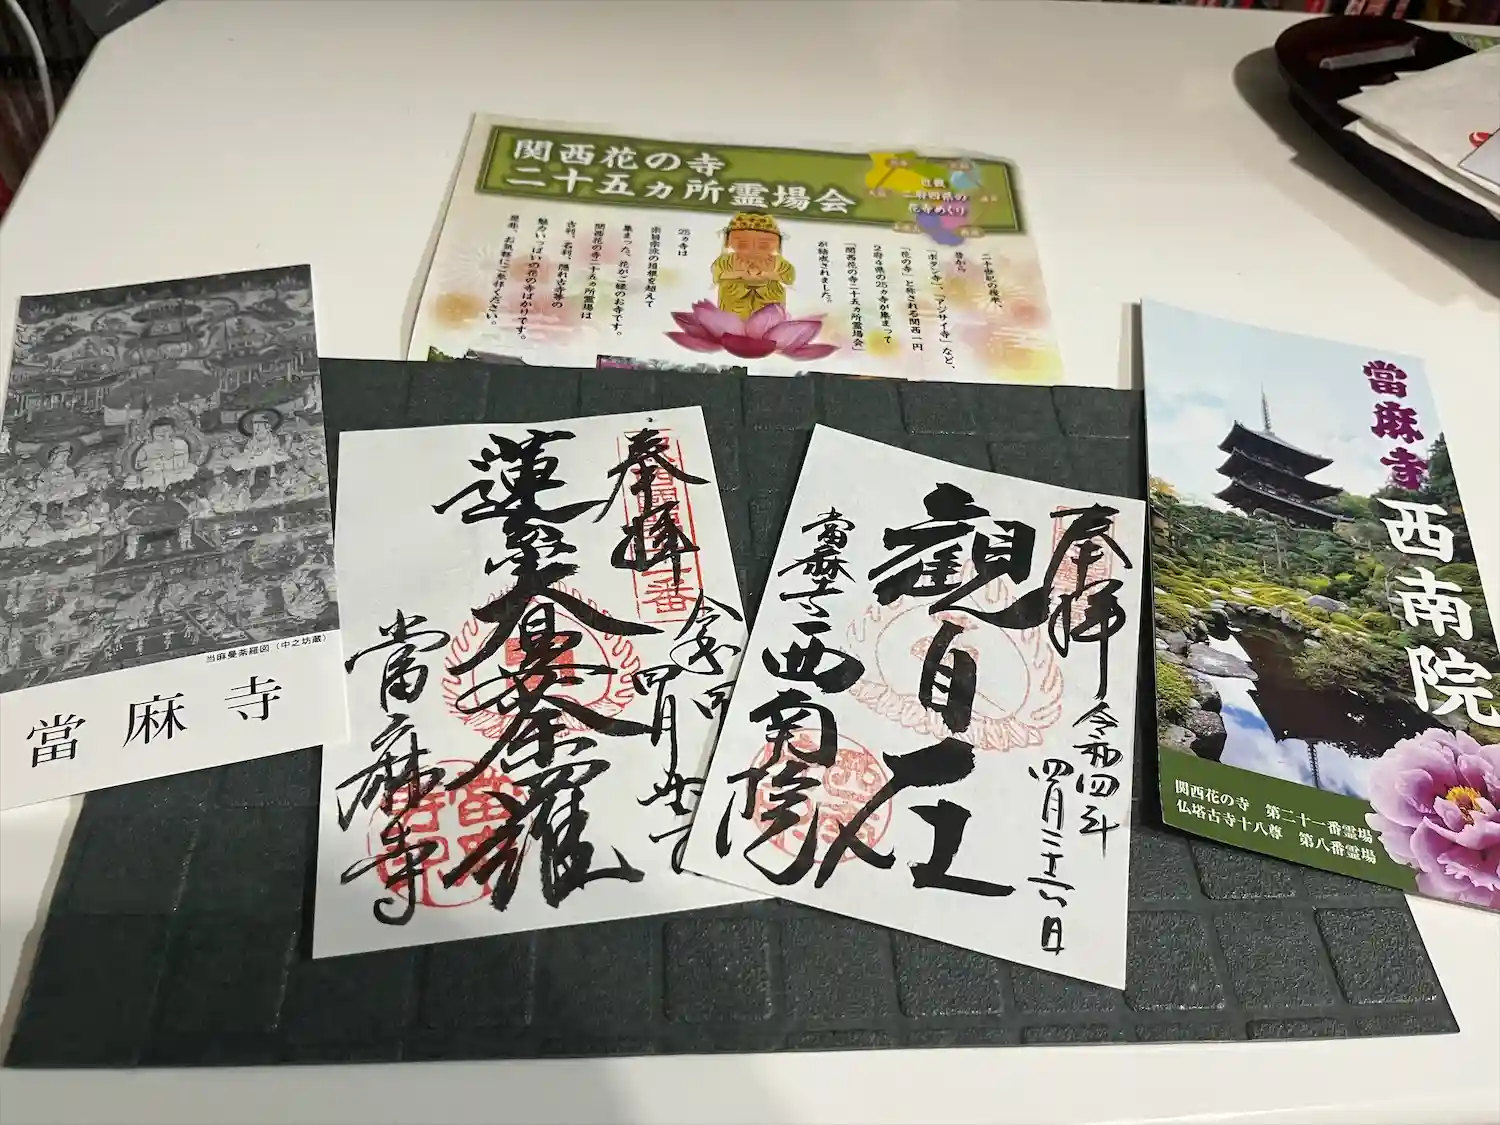 関西花の寺
二十五ヵ所霊場会
近畿
二府四県の
花寺めぐり
二十世紀の後半、
昔から
「ボタン寺」、「アジサイ寺」など、
「花の寺」と称される関西一円
2府4県の25カ寺が集まって
「関西花の寺二十五カ所霊場会」
が結成されました。
25カ寺は
宗旨宗派の垣根を超えて
集まった、花がご縁のお寺です。
関西花の寺二十五カ所霊場は
古刹、名刹、隠れ古寺等の
魅力いっぱいの花の寺ばかりです。
是非、お気軽にご参拝ください。
当麻曼荼羅図(中之坊蔵)
當麻寺
奉拝
蓮糸大曼荼羅
當麻寺
奉拝
令和四年
四月二十六日
観自在
當麻寺
西南院
當麻寺
西南院
関西花の寺 第二十一番霊場
仏塔古寺十八尊 第八番霊場